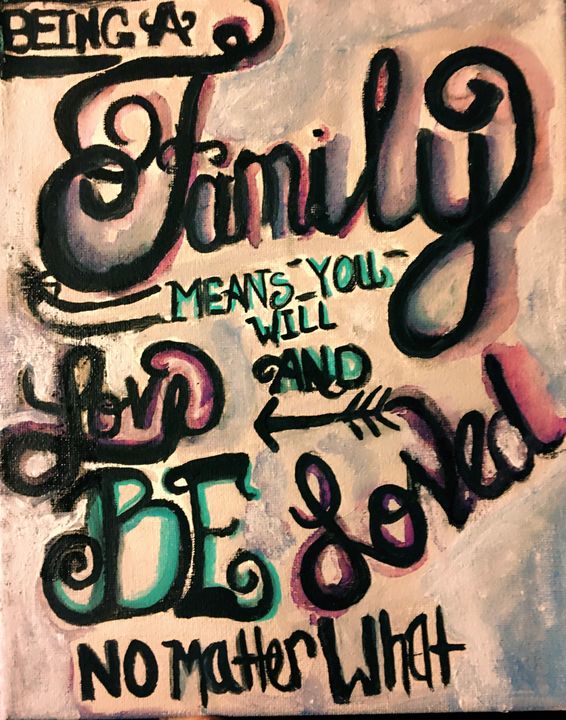 BEING A
Family
MEANS YOU
WILL
Love AND
BE Loved
NO Matter What